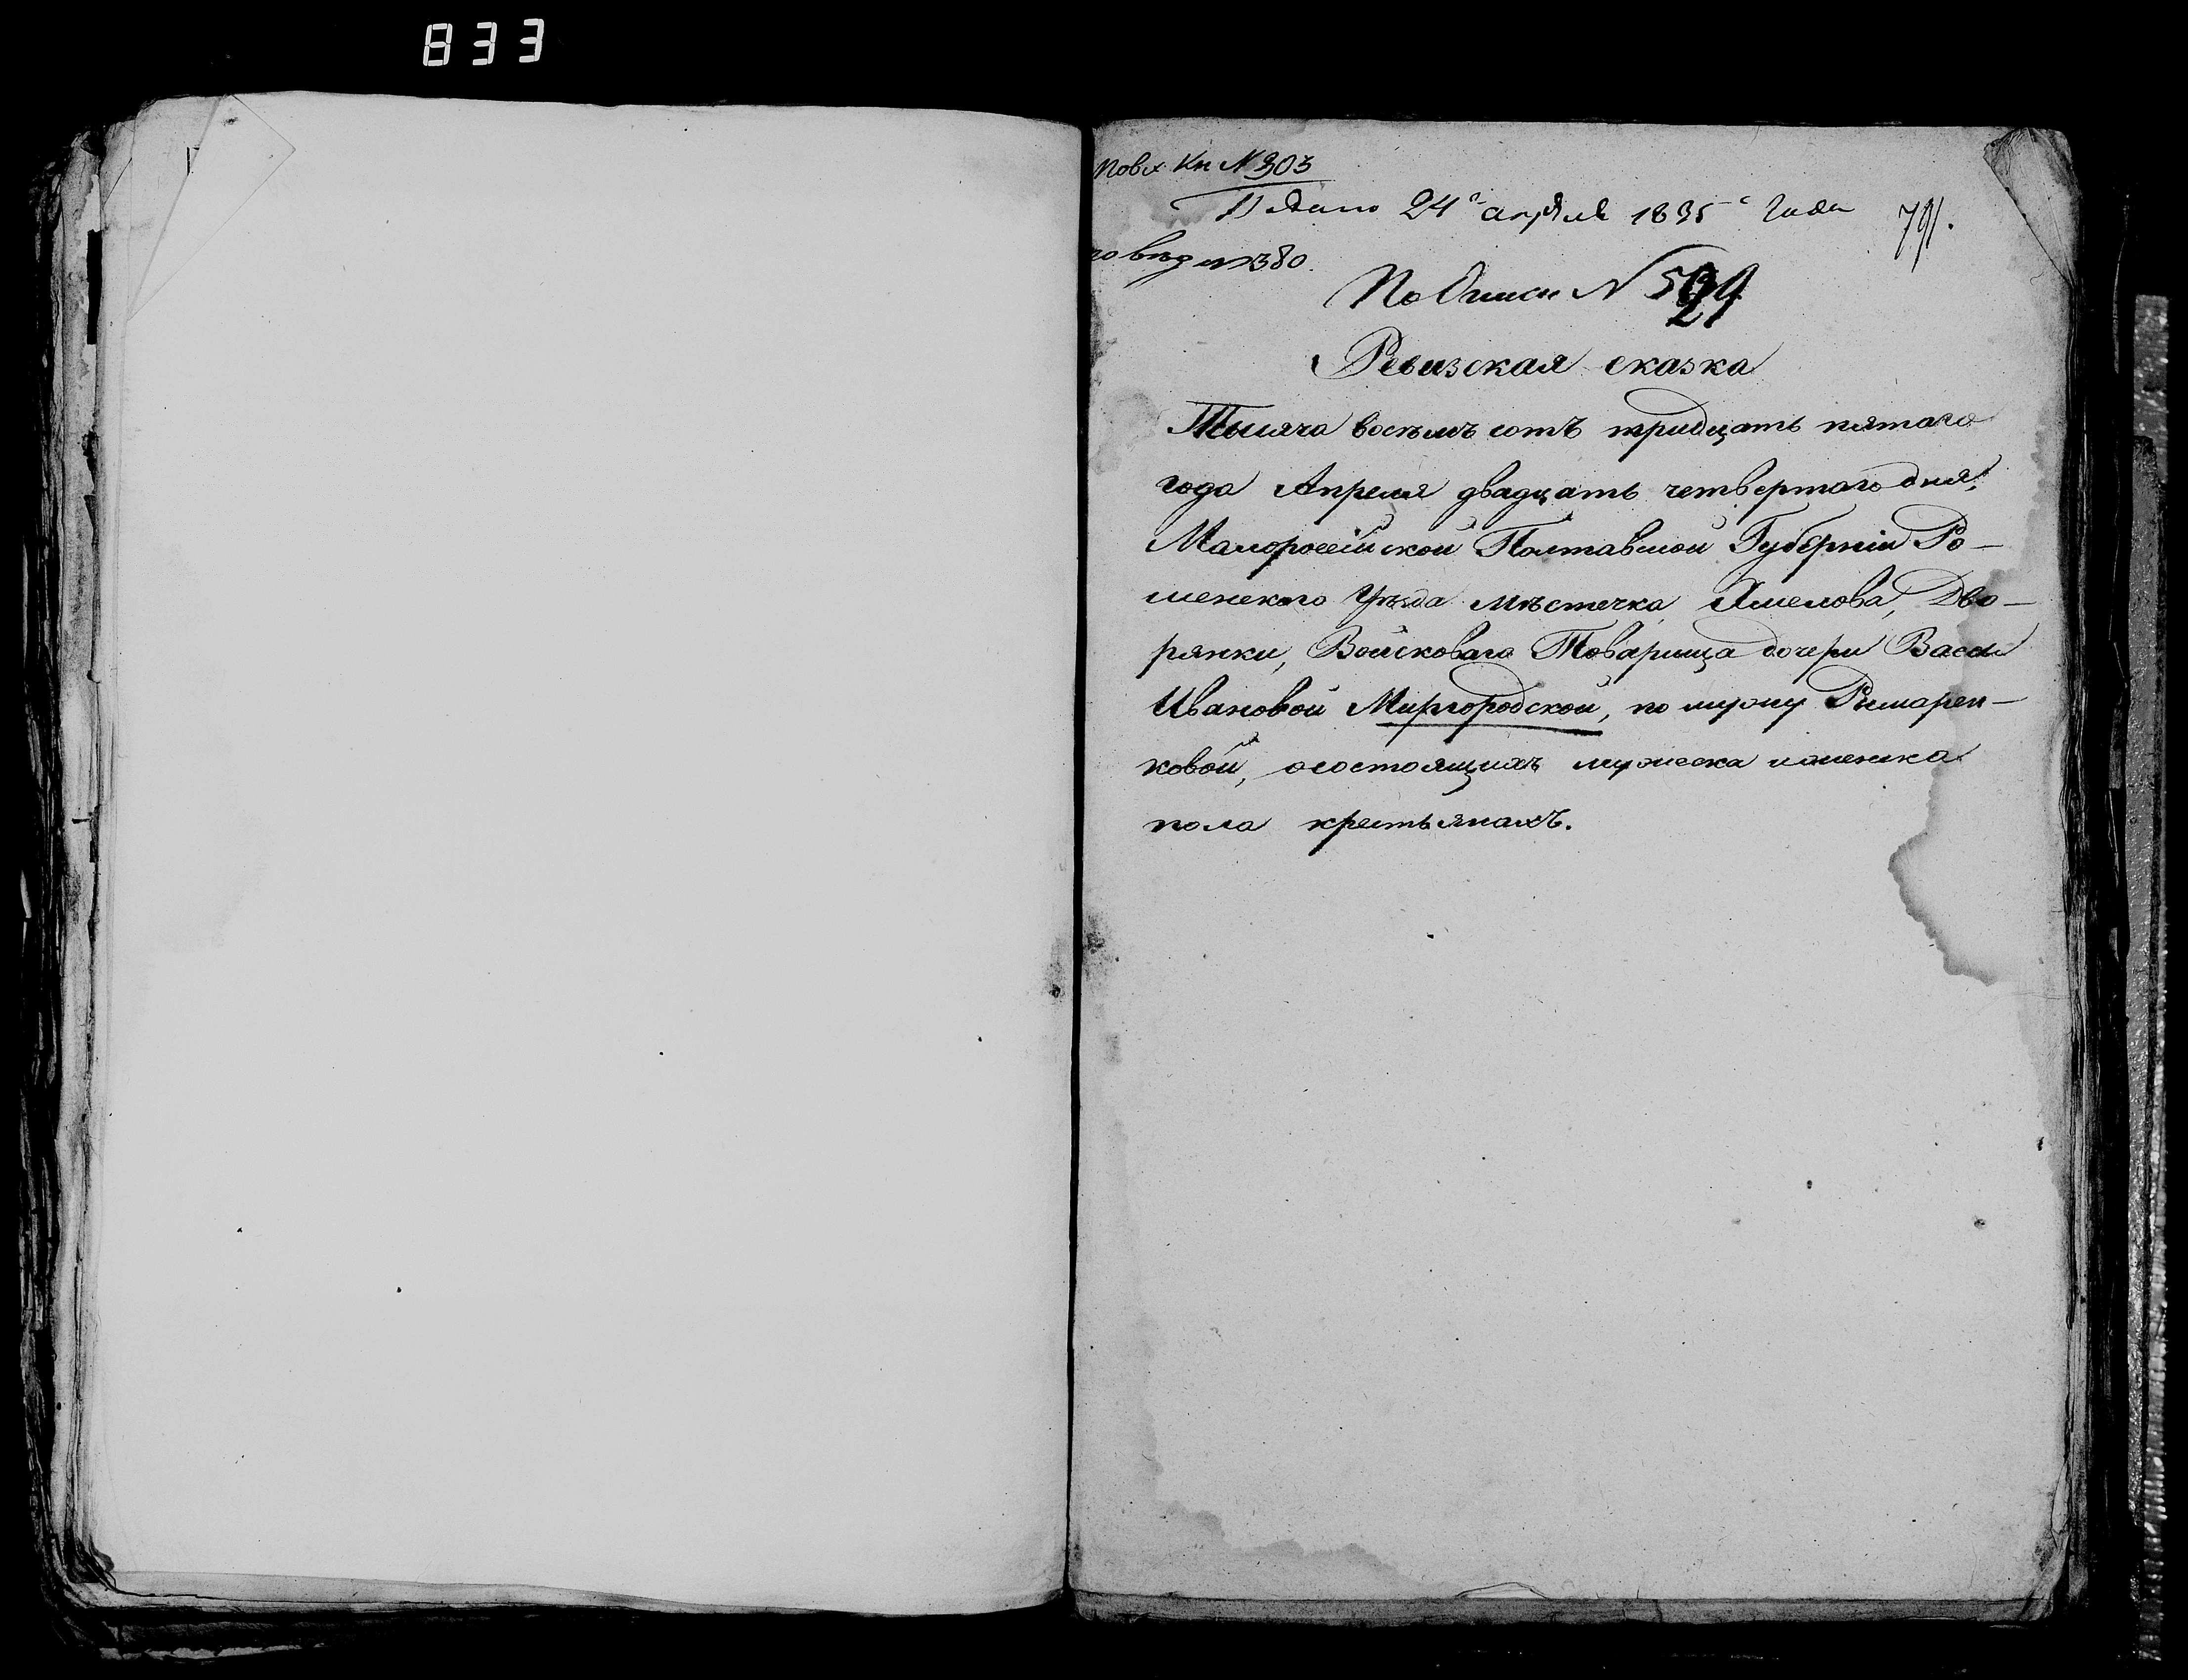 833
По вх Кн № 303
Подано 24го апреля 1835го Года
791.
по вед № 380.
По Описи № 529
Ревизская сказка
Тысяча восемъ сотъ тридцать пятаго
года Апреля двадцать четвертаго дня,
Малоросійской Полтавской Губерніи Ро-
менскаго Уѣзда мѣстечка Смелова, Дво-
рянки, Войсковаго Товарища дочери
Ивановой Миргородской, по мужу Римарен-
ковой, о состоящихъ мужеска и женска
пола крестьянахъ.